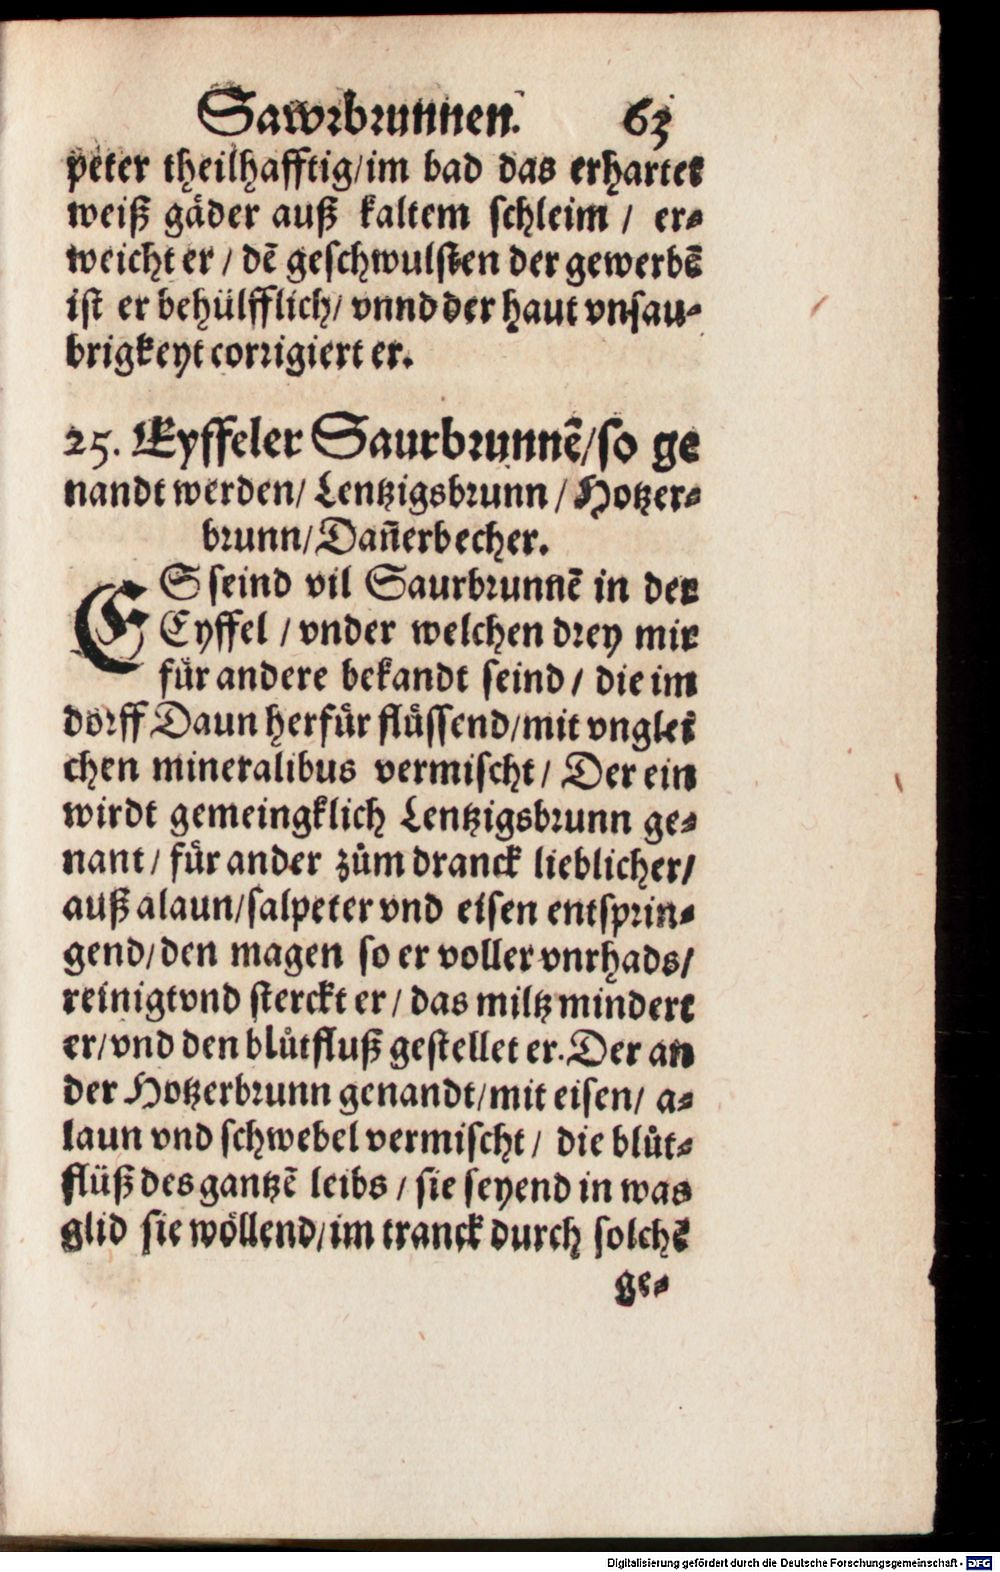 Sawrbrunnen. 63
peter theilhafftig/im bad das erhartet
weiß gäder auß kaltem schleim / er⸗
weicht er / dē geschwulsten der gewerbē
ist er behülfflich/ vnnd der haut vnsau⸗
brigkeyt corrigiert er.
25. Eyffeler Saurbrunnē/so ge
nandt werden/ Lentzigsbrunn / Hotzer⸗
brunn/Dan̄erbecher.
ES seind vil Saurbrunnē in der
Eyffel / vnder welchen drey mir
für andere bekandt seind / die im
dorff Daun herfür flüssend/mit vnglei
chen mineralibus vermischt/ Der ein
wirdt gemeingklich Lentzigsbrunn ge⸗
nant / für ander zům dranck lieblicher/
auß alaun/salpeter vnd eisen entsprin⸗
gend/den magen so er voller vnrhads/
reinigt vnd sterckt er / das miltz mindert
er/vnd den blůtfluß gestellet er. Der an
der Hotzerbrunn genandt/mit eisen/ a⸗
laun vnd schwebel vermischt / die blůt⸗
flüß des gantzē leibs / sie seyend in was
glid sie wöllend/im tranck durch solchē
ge⸗
Digitalisierung gefördert durch die Deutsche Forschungsgemeinschaft - DFG